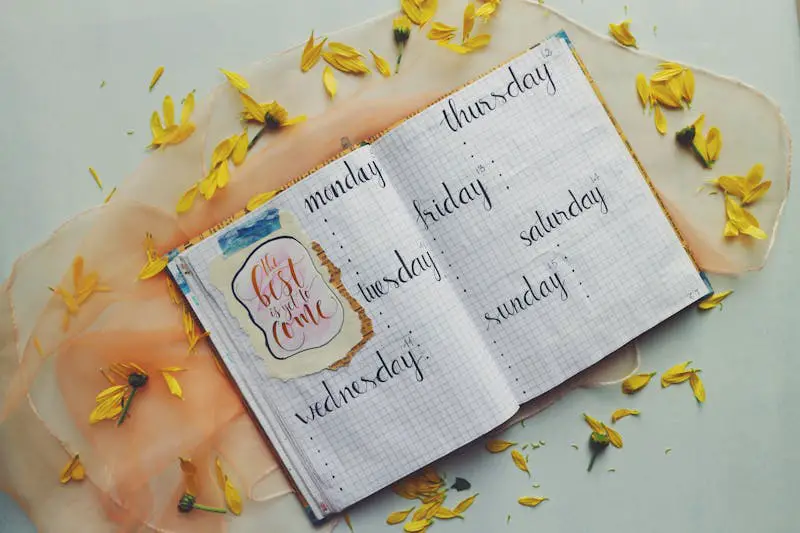 monday
the
best
is yet to
come
tuesday
wednesday 11
thursday 12
friday 13
saturday 14
sunday 15